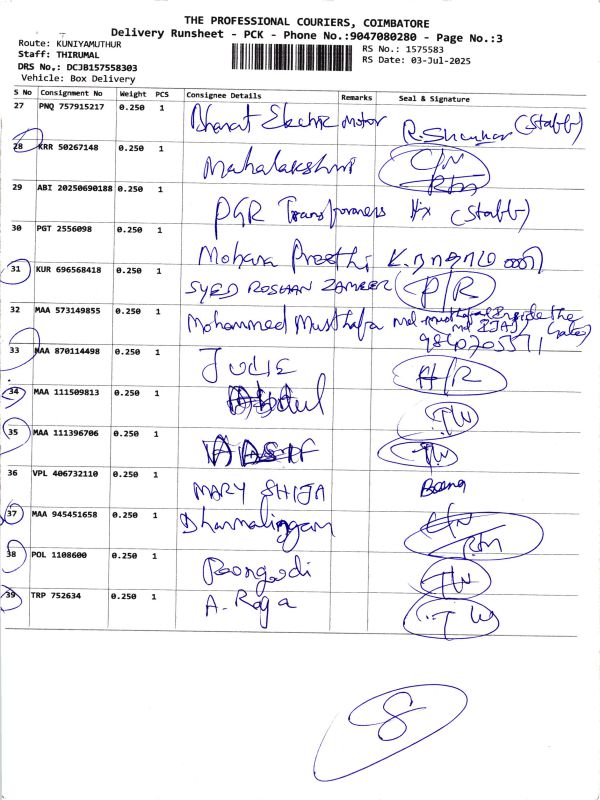 THE PROFESSIONAL COURIERS, COIMBATORE
Delivery Runsheet - PCK - Phone No.:9047080280 - Page No.:3
Route: KUNIYAMUTHUR
Staff: THIRUMAL
DRS No.: DCJB157558303
Vehicle: Box Delivery
RS No.: 1575583
RS Date: 03-Jul-2025
S No Consignment No Weight PCS Consignee Details Remarks Seal & Signature
27 PNQ 757915217 0.250 1 Bharat Electric Motor R. Shankar (Staff)
28 KRR 50267148 0.250 1 Mahalakshmi C/N
RTM
29 ABI 20250690188 0.250 1 PGR Transformers (Staff)
30 PGT 2556098 0.250 1 Mohana Preethi
31 KUR 696568418 0.250 1 SYED ROSHAN ZAMEER P/R
32 MAA 573149855 0.250 1 Mohammed Musthafa Inside the
9840705571
33 MAA 870114498 0.250 1 JULIE A/R
34 MAA 111509813 0.250 1 Abdul TW
35 MAA 111396706 0.250 1 AASIF TW
36 VPL 406732110 0.250 1 MARY SHIJA
37 MAA 945451658 0.250 1 Dharmalinggam C/N
RTM
38 POL 1108600 0.250 1 Poongodi TW
39 TRP 752634 0.250 1 A. Raja TW
8